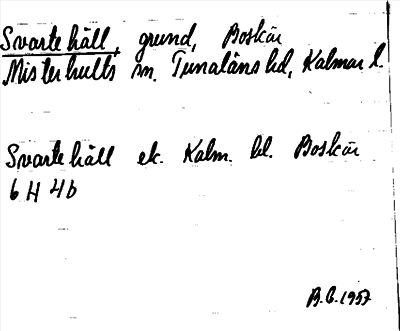 Svarte häll, grund, Boskär
Misterhults sn. Tunaläns hd, Kalmar l.
Svarte häll ek. Kalm. bl. Boskär
6 H 4b
B.G. 1957